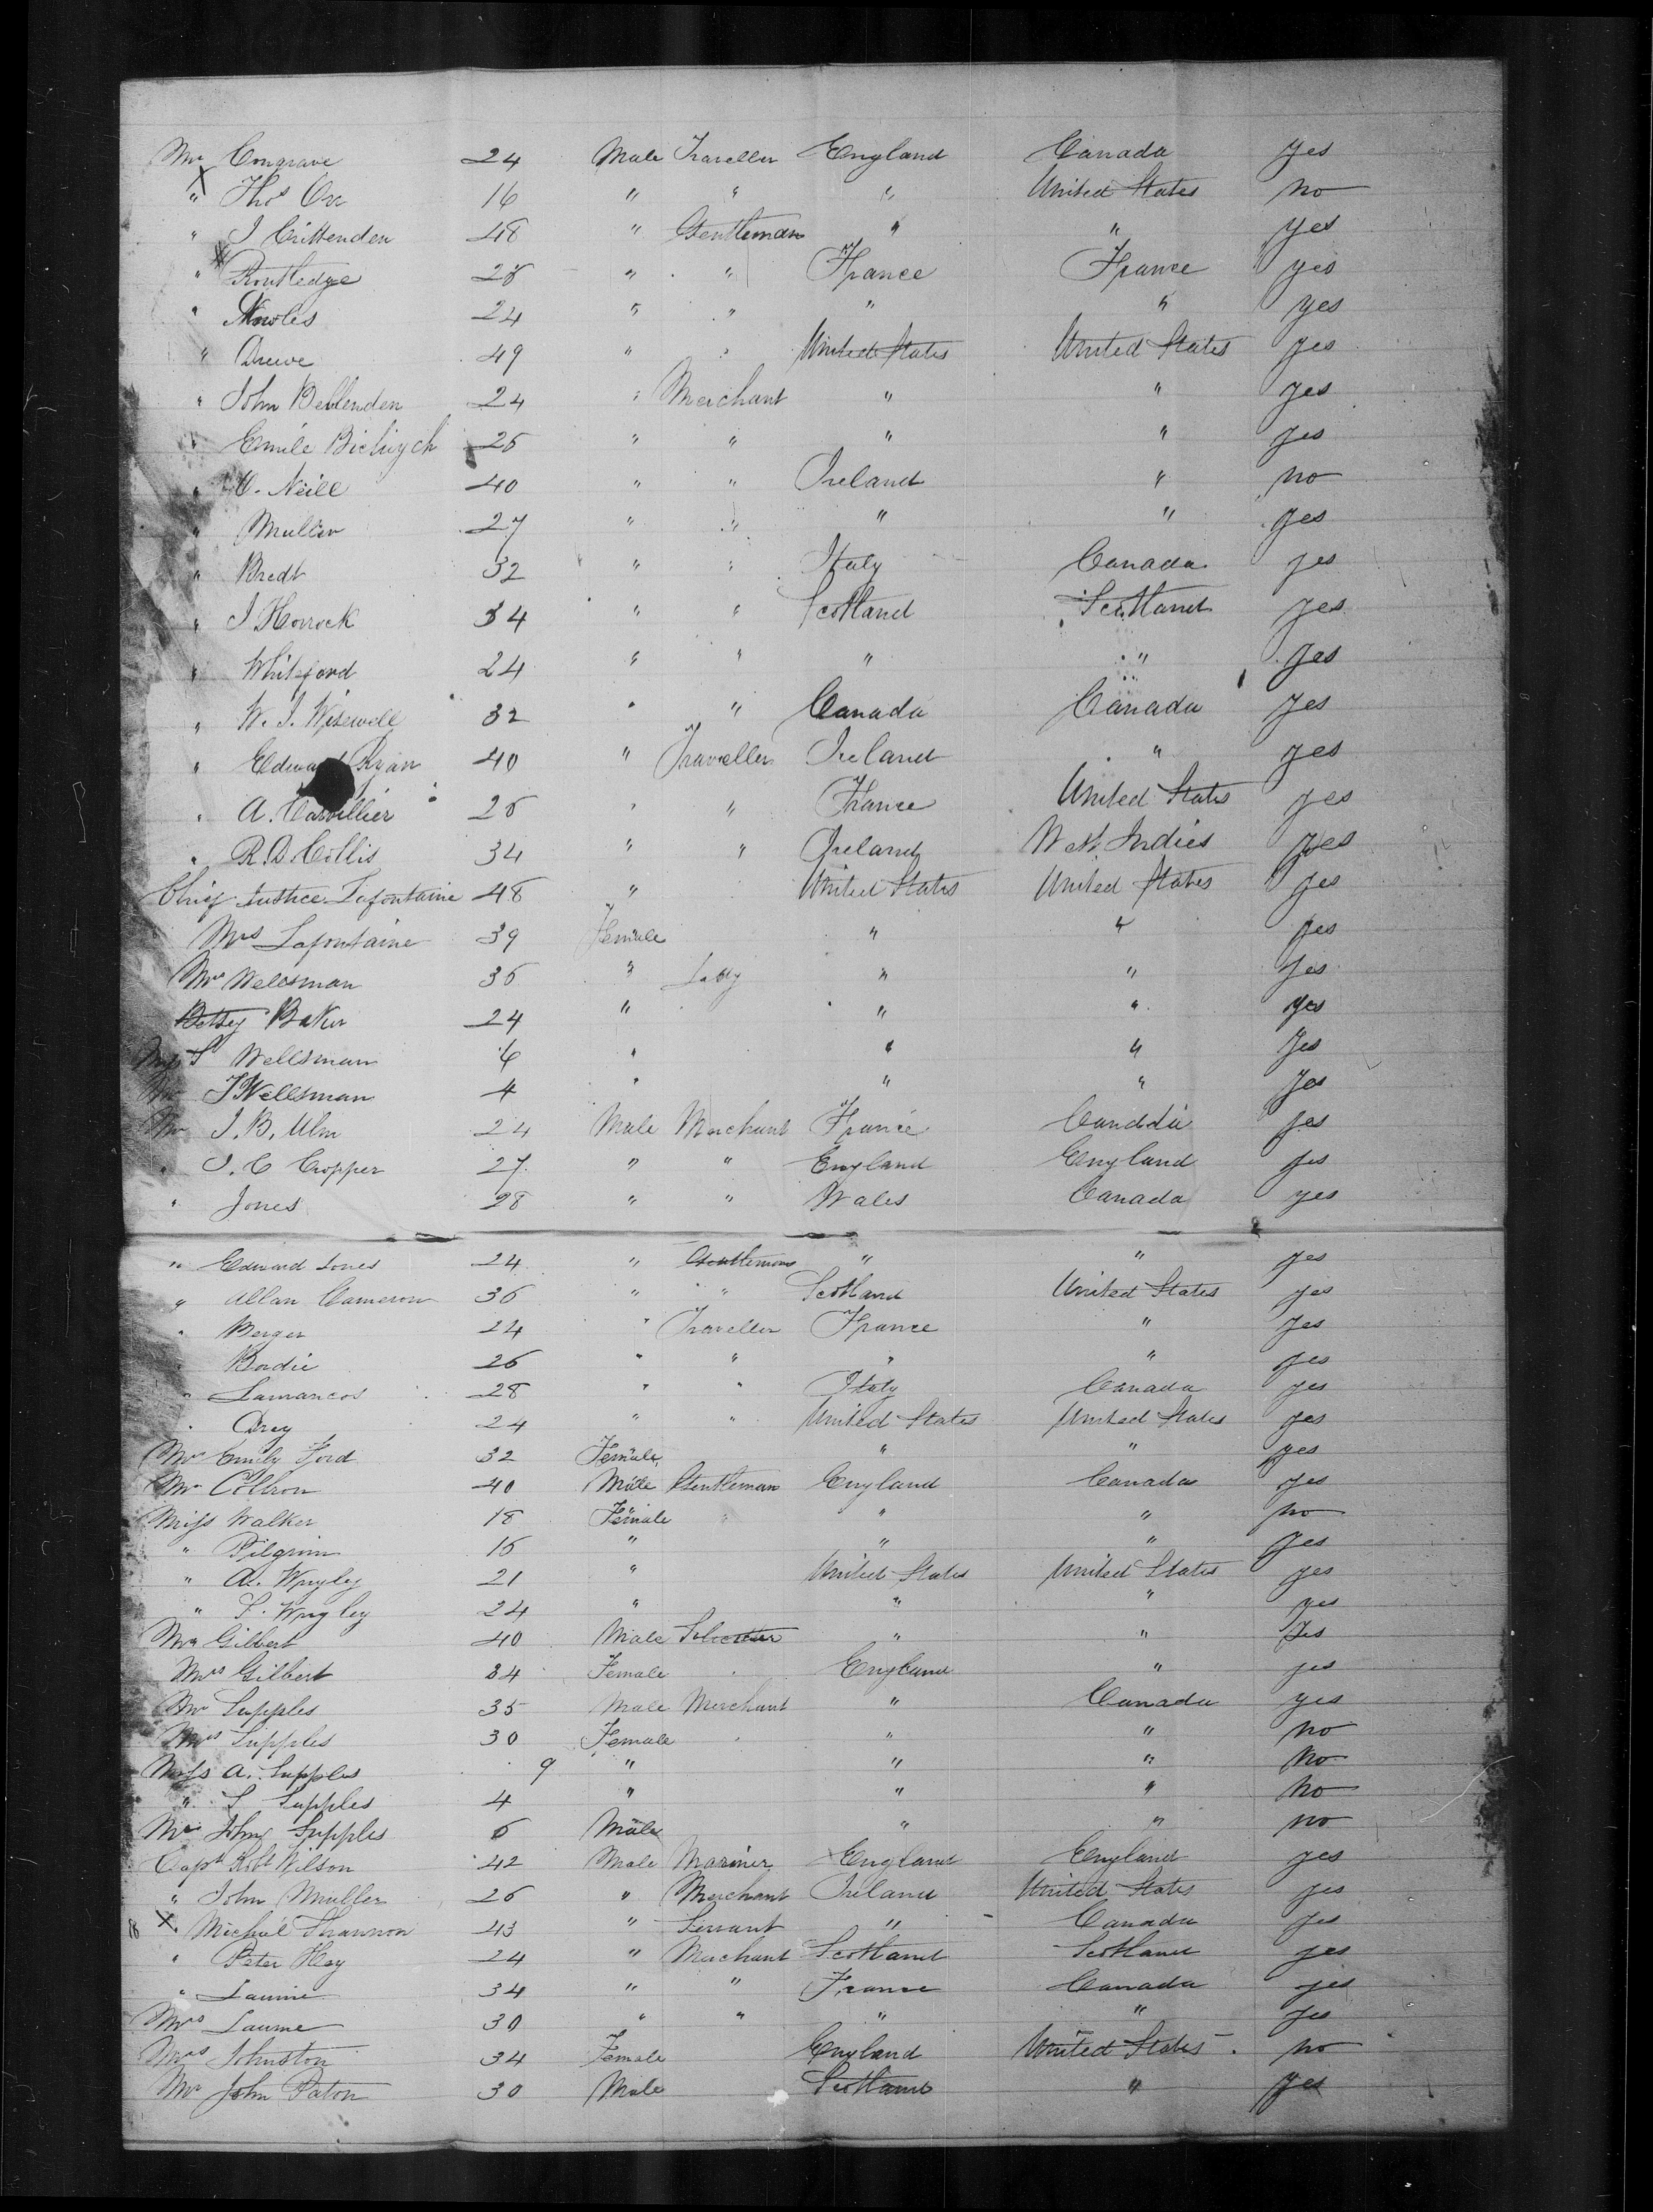 Mr Congrave 24 Male Traveller England Canada yes
X
" Thos Orr 16 " " " United States no
" J Crittenden 48 " Gentleman " " yes
" Routledge 28 " " France France yes
" Nowles 24 " " " " yes
" Druve 49 " " United States United States yes
" John Bellenden 24 " Merchant " " yes
" Emile 26 " " " " yes
" O. Neill 40 " " Ireland " no
" Muller 27 " " " " yes
" Bredt 32 " " Italy Canada yes
" J Horrock 34 " " Scotland Scotland yes
" Whiteford 24 " " " " yes
" W. J. Wisewell 32 " " Canada Canada yes
" Edward Ryan 40 " Traveller Ireland " yes
" A. Carvillier 26 " " France United States yes
" R. D. Collis 34 " " Ireland West Indies yes
Chief Justice Lafontaine 48 " United States United States yes
Mrs Lafontaine 39 Female " " yes
Mrs Wellsman 36 " Lady " " yes
Betsy Baker 24 " " " yes
S Wellsman 6 " " " yes
J Wellsman 4 " " " yes
Mr J. B. Ulm 24 Male Merchant France Canada yes
" J. C Cropper 27 " " England England yes
" Jones 28 " " Wales Canada yes
" Edward Jones 24 " Gentleman " " yes
" Allan Cameron 36 " " Scotland United States yes
" Berger 24 " Traveller France " yes
" Bordie 26 " " " " yes
" Lamancos 28 " " Italy Canada yes
" Drey 24 " " United States United States yes
Mrs Emily Ford 32 Female " " yes
Mr Collron 40 Male Gentleman England Canada yes
Miss Walker 18 Female " " " no
" Pilgrim 15 " " " yes
" A. Wrigley 21 " United States United States yes
" S. Wrigley 24 " " " yes
Mr Gilbert 40 Male Solicitor " " yes
Mrs Gilbert 34 Female England " yes
Mr Supples 35 Male Merchant " Canada yes
Mrs Supples 30 Female " " no
Miss A. Supples 9 " " " no
" S Supples 4 " " " no
Mr John Supples 6 Male " " no
Capt Robt Wilson 42 Male Mariner England England yes
" John Muller 26 " Merchant Ireland United States yes
X " Michal Shannon 43 " Servant " Canada yes
" Peter Hay 24 " Merchant Scotland Scotland yes
" Laurie 34 " " France Canada yes
Mrs Laurie 30 " " " " yes
Mrs Johnston 34 Female England United States no
Mr John Paton 30 Male Scotland " yes